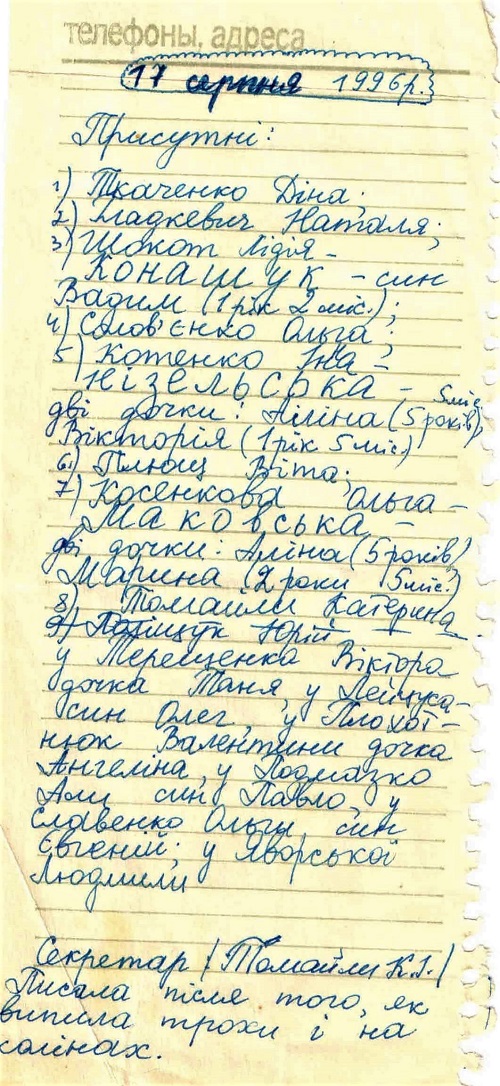 телефоны, адреса
17 серпня 1996р.
Присутні:
1) Ткаченко Діна;
2) Гладкевич Наталя;
3) Шокот Лідія –
Конашук – син
Вадим (1 рік 2 міс.);
4) Солов'єнко Ольга;
5) Котенко Іна –
Нізельська –
дві дочки: Аліна (5 років 5 міс
Вікторія (1 рік 5 міс.)
6) Плющ Віта;
7) Косенкова Ольга –
Маковська –
дві дочки: Аліна (5 років)
Марина (2 роки 5 міс.)
8) Томайли Катерина
9) Поліщук Юрій
у Терещенка Віктора
дочка Таня, у Лейчука-
син Олег, у Плохот-
нюк Валентини дочка
Ангеліна, у Подмазко
Али син Павло, у
Славенко Ольги син
Євгеній; у Яворської
Людмили
Секретар /Томайли К.І./
Писала після того, як
випила трохи і на
колінах.